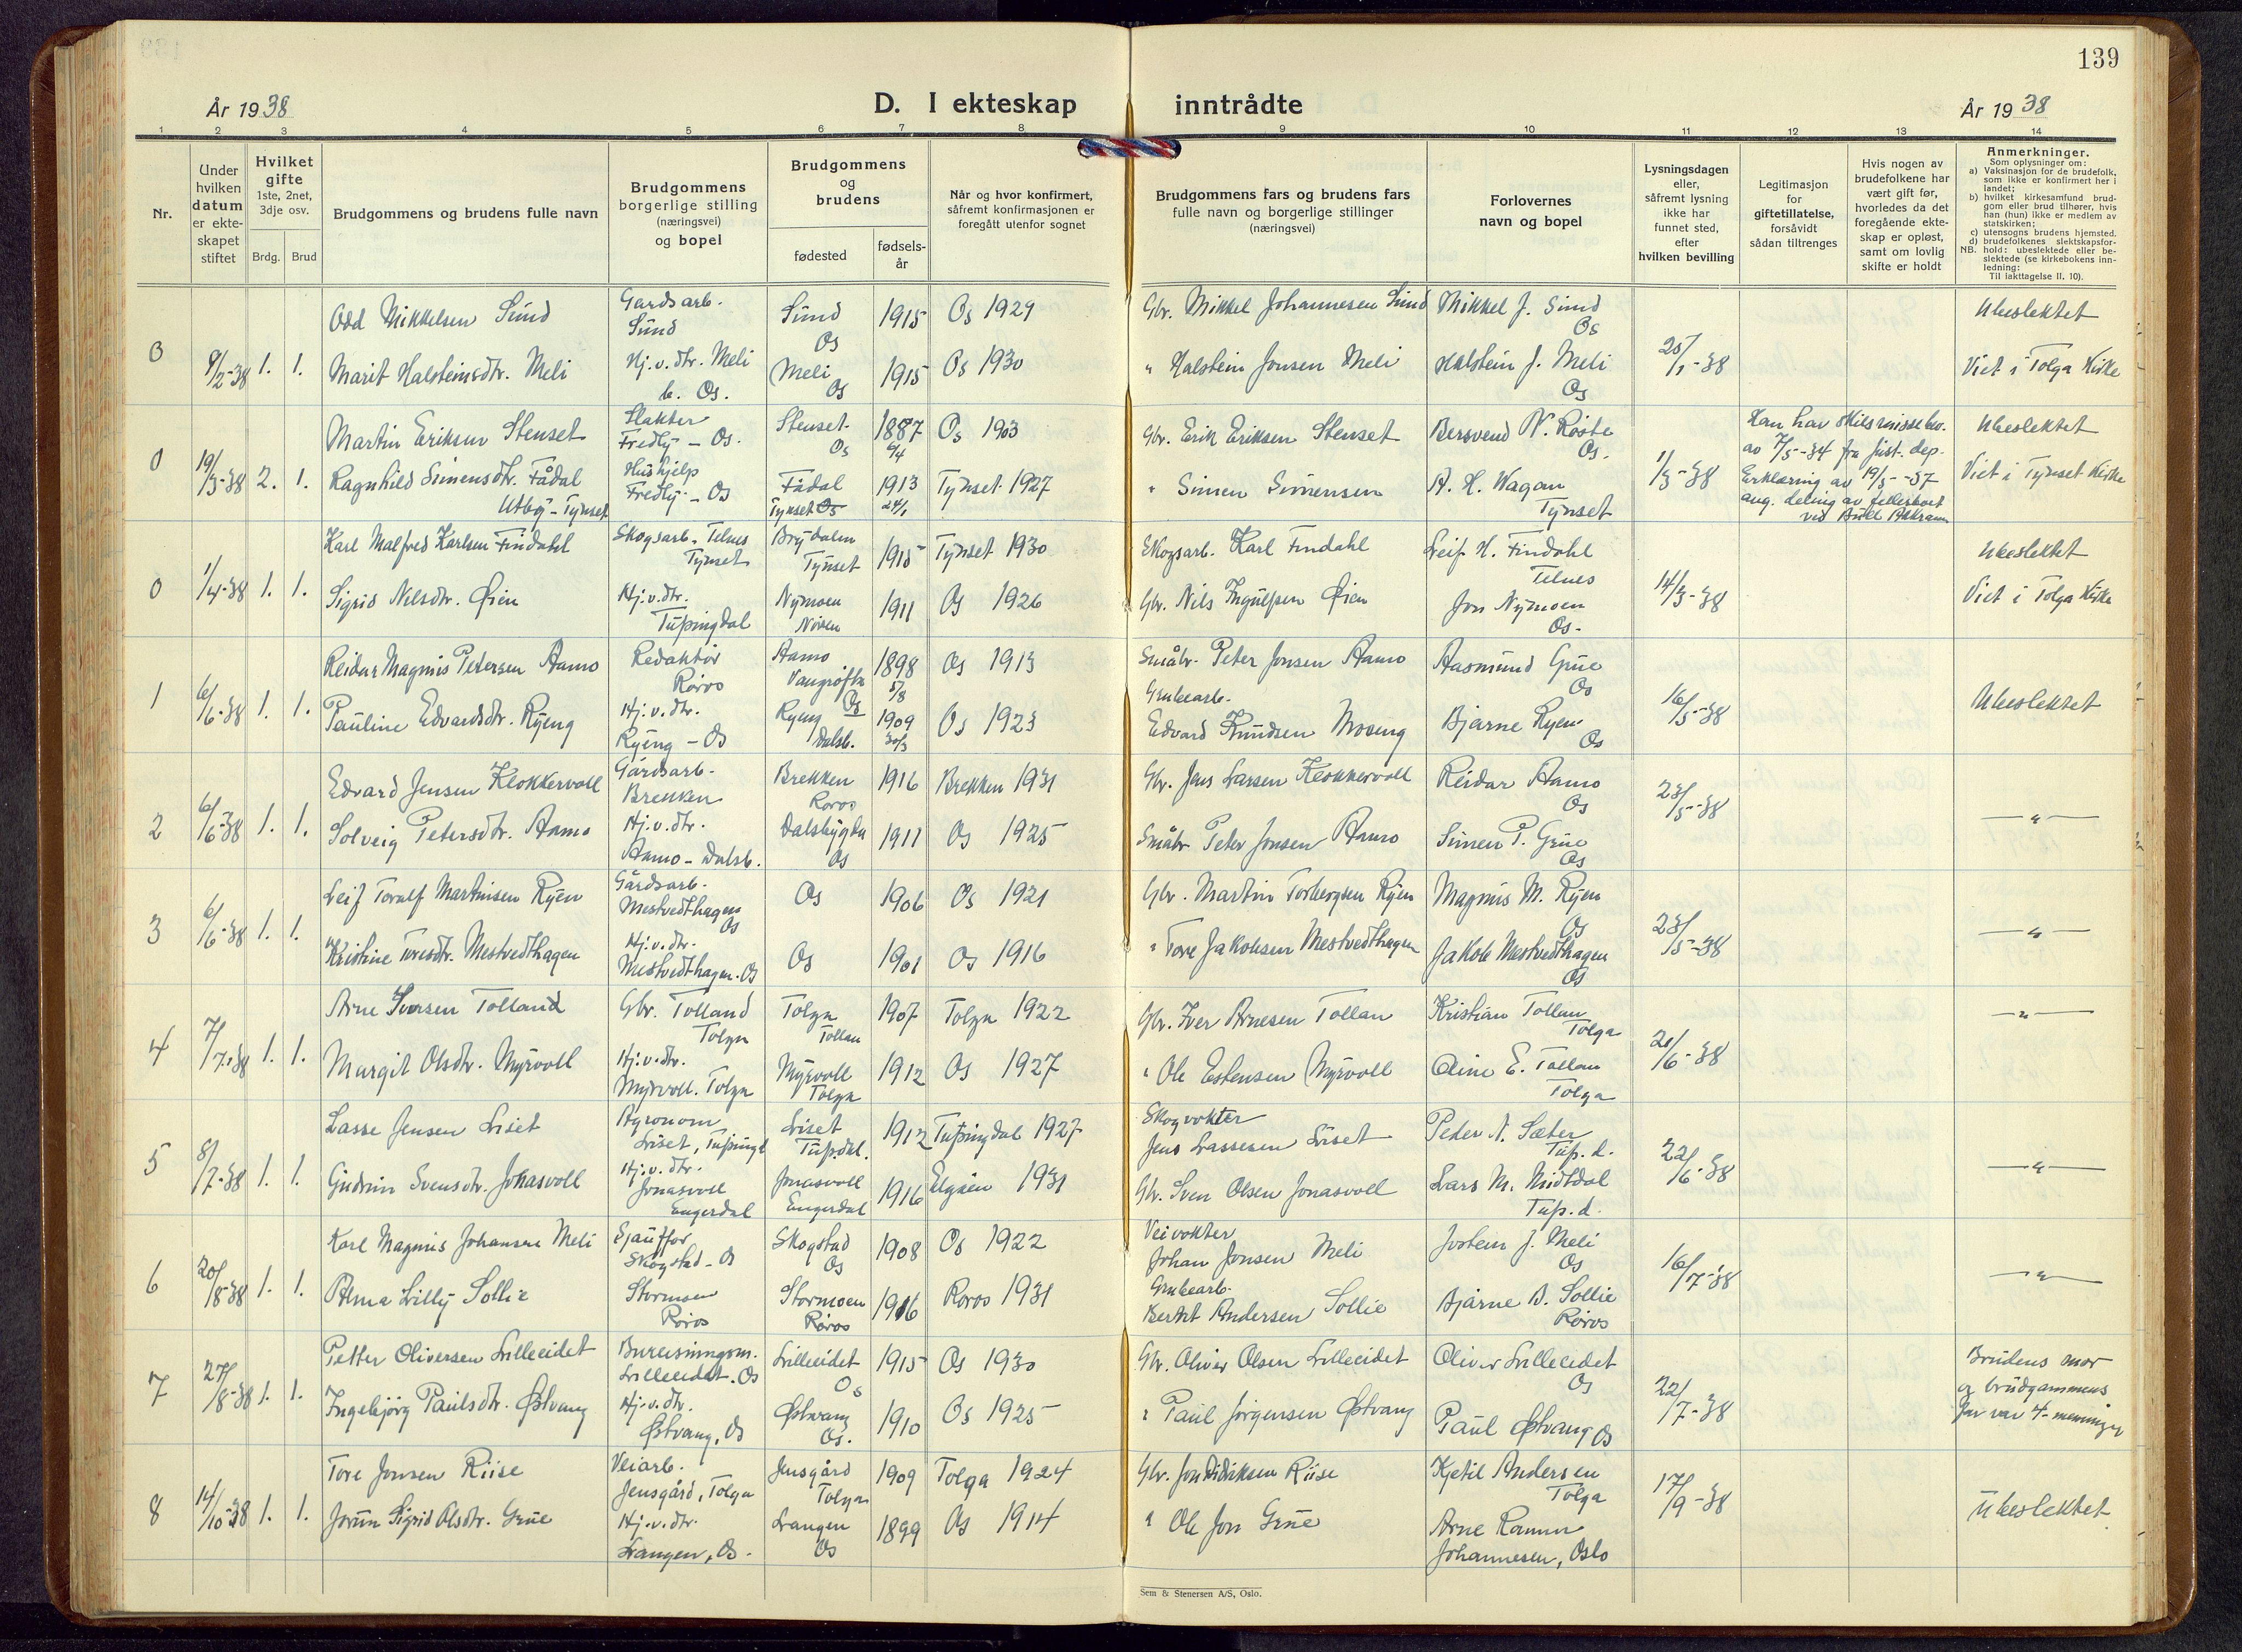 139
År 1938
D. I ekteskap inntrådte
År 1938
1 2 3 4 5 6 7 8 9 10 11 12 13 14
Nr.
Under hvilken datum er ekteskapet stiftet
Hvilket gifte 1ste, 2net, 3dje osv.
Brdg. Brud
Brudgommens og brudens fulle navn
Brudgommens borgerlige stilling (næringsvei) og bopel
Brudgommens og brudens
fødested
fødsels-år
Når og hvor konfirmert, såfremt konfirmasjonen er foregått utenfor sognet
Brudgommens fars og brudens fars fulle navn og borgerlige stillinger (næringsvei)
Forlovernes navn og bopel
Lysningsdagen eller, såfremt lysning ikke har funnet sted, efter hvilken bevilling
Legitimasjon for giftetillatelse, forsåvidt sådan tiltrenges
Hvis nogen av brudefolkene har vært gift før, hvorledes da det foregående ekteskap er opløst, samt om lovlig skifte er holdt
Anmerkninger.
Som oplysninger om:
a) Vaksinasjon for de brudefolk, som ikke er konfirmert her i landet;
b) hvilket kirkesamfund brudgom eller brud tilhører, hvis han (hun) ikke er medlem av statskirken;
c) utensogns brudens hjemsted.
d) brudefolkenes slektskapsforhold: ubeslektede eller beslektede (se kirkebokens innledning:
NB. Til iakttagelse II. 10).
0 9/2-38 1. 1.
Odd Mikkelsen Sund Gardsarb. Sund Sund Os 1915 Os 1929 Gbr. Mikkel Johannesen Sund Mikkel J. Sund Os 25/1-38 Ubeslektet
Marit Halsteinsdtr. Meli Hj.v.dtr. Meli b. Os. Meli Os 1915 Os 1930 " Halstein Jonsen Meli Halstein J. Meli Os Viet i Tolga Kirke
0 19/3-38 2. 1.
Martin Eriksen Stenset Slakter Fredly - Os. Stenset Os 1887 9/4 Os 1903 Gbr. Erik Eriksen Stenset Bersvend N. Røste Os. 1/3-38 Ubeslektet
Ragnhild Simensdtr. Fådal Utby - Tynset Hushjelp Fredly - Os Fådal Tynset 1913 24/1 Tynset 1927 " Simen Simensen A. H. Wagan Tynset Viet i Tynset Kirke
Han har skilsmissebev. av 7/5-34 fra Just. dep.
Erklæring av 19/3-37 ang. deling av fellesboet ved
0 1/4-38 1. 1.
Karl Malfred Karlsen Findahl Skogsarb. Telnes Tynset Brydalen Tynset 1915 Tynset 1930 Skogsarb. Karl Findahl Leif H. Findahl Telnes 14/3-38 Ubeslektet
Sigrid Nilsdtr. Øien Hj.v.dtr. Tufsingdal Nymoen 1911 Os 1926 Gbr. Nils Ingulfsen Øien Jon Nymoen Os- Viet i Tolga Kirke
1 6/6-38 1. 1.
Reidar Magnus Petersen Aamo Redaktør Røros Aamo Vangrøfta Os 1898 5/8 Os 1913 Småbr. Peter Jonsen Aamo Aasmund Grue Os 16/5-38 Ubeslektet
Pauline Edvardsdtr. Ryeng Hj.v.dtr. Ryeng - Os Ryeng Dalsb. 1909 30/3 Os 1923 Grubearb. Edvard Knudsen Moseng Bjarne Ryen Os
2 6/6-38 1. 1.
Edvard Jensen Klokkervoll Gårdsarb. Brekken Brekken Røros 1916 Brekken 1931 Gbr. Jens Larsen Klokkervoll Reidar Aamo Os 23/5-38
Solveig Petersdtr. Aamo Hj.v.dtr. Aamo - Dalsb. Dalsbygda Os 1911 Os 1925 Småbr Peter Jonsen Aamo Simen P. Grue Os — " —
3 6/6-38 1. 1.
Leif Toralf Martinsen Ryen Gårdsarb. Mestvedthagen Os Os 1906 Os 1921 Gbr. Martin Torbergsen Ryen Magnus M. Ryen Os 23/5-38 — " —
Kristine Toresdtr. Mestvedthagen Hj.v.dtr. Mestvedthagen. Os Os 1901 Os 1916 " Tore Jakobsen Mestvedthagen Jakob Mestvedthagen Os
4 7/7-38 1. 1.
Arne Iversen Tolland Gbr. Tolland Tolga Tolga Tollan 1907 Tolga 1922 Gbr. Iver Arnesen Tollan Kristian Tollan Tolga 21/6-38 — " —
Margit Olsdtr. Myrvoll Hj.v.dtr. Myrvoll. Tolga Myrvoll Tolga 1912 Os 1927 " Ole Estensen Myrvoll Oline E. Tollan Tolga
5 8/7-38 1. 1.
Lasse Jensen Liset Agronom Liset, Tufsingd Liset Tufs.dal. 1912 Tufsingdal 1927 Skogvokter Jens Lassesen Liset Peder N. Sæter Tufs. d. 22/6-38 — " —
Gudrun Svensdtr. Jonasvoll Hj.v.dtr. Jonasvoll Engerdal Jonasvoll Engerdal 1916 Elgåen 1931 Gbr. Sven Olsen Jonasvoll Lars M. Midtdal Tufs. d.
6 20/8-38 1. 1.
Karl Magnus Johansen Meli Sjauffør Skogstad - Os Skogstad Os 1908 Os 1922 Veivokter Johan Jonsen Meli Jostein J. Meli Os 16/7-38 — " —
Alma Lilly Sollie Stormoen Røros Stormoen Røros 1916 Røros 1931 Grubearb. Bernt Andersen Sollie Bjarne B. Sollie Røros
7 27/8-38 1. 1.
Petter Oliversen Lilleeidet Bureisningsm. Lilleeidet. Os Lilleeidet Os 1915 Os 1930 Gbr. Oliver Olsen Lilleeidet Oliver Lilleeidet Os 22/7-38 Brudens mor og brudgommens far var 4-menninger
Ingebjørg Paulsdtr. Østvang Hj.v.dtr. Østvang, Os Østvang Os. 1910 Os 1925 " Paul Jørgensen Østvang Paul Østvang Os
8 14/10-38 1. 1.
Tore Jonsen Riise Veiarb. Jensgård, Tolga Jensgård Tolga 1909 Tolga 1924 Gbr. Jon Didriksen Riise Kjetil Andersen Tolga 17/9-38 Ubeslektet
Jorun Sigrid Olsdtr. Grue Hj.v.dtr. Langen, Os. Langen Os 1899 Os 1914 " Ole Jon Grue Arne Johannesen, Oslo
Sem & Stenersen A/S, Oslo.